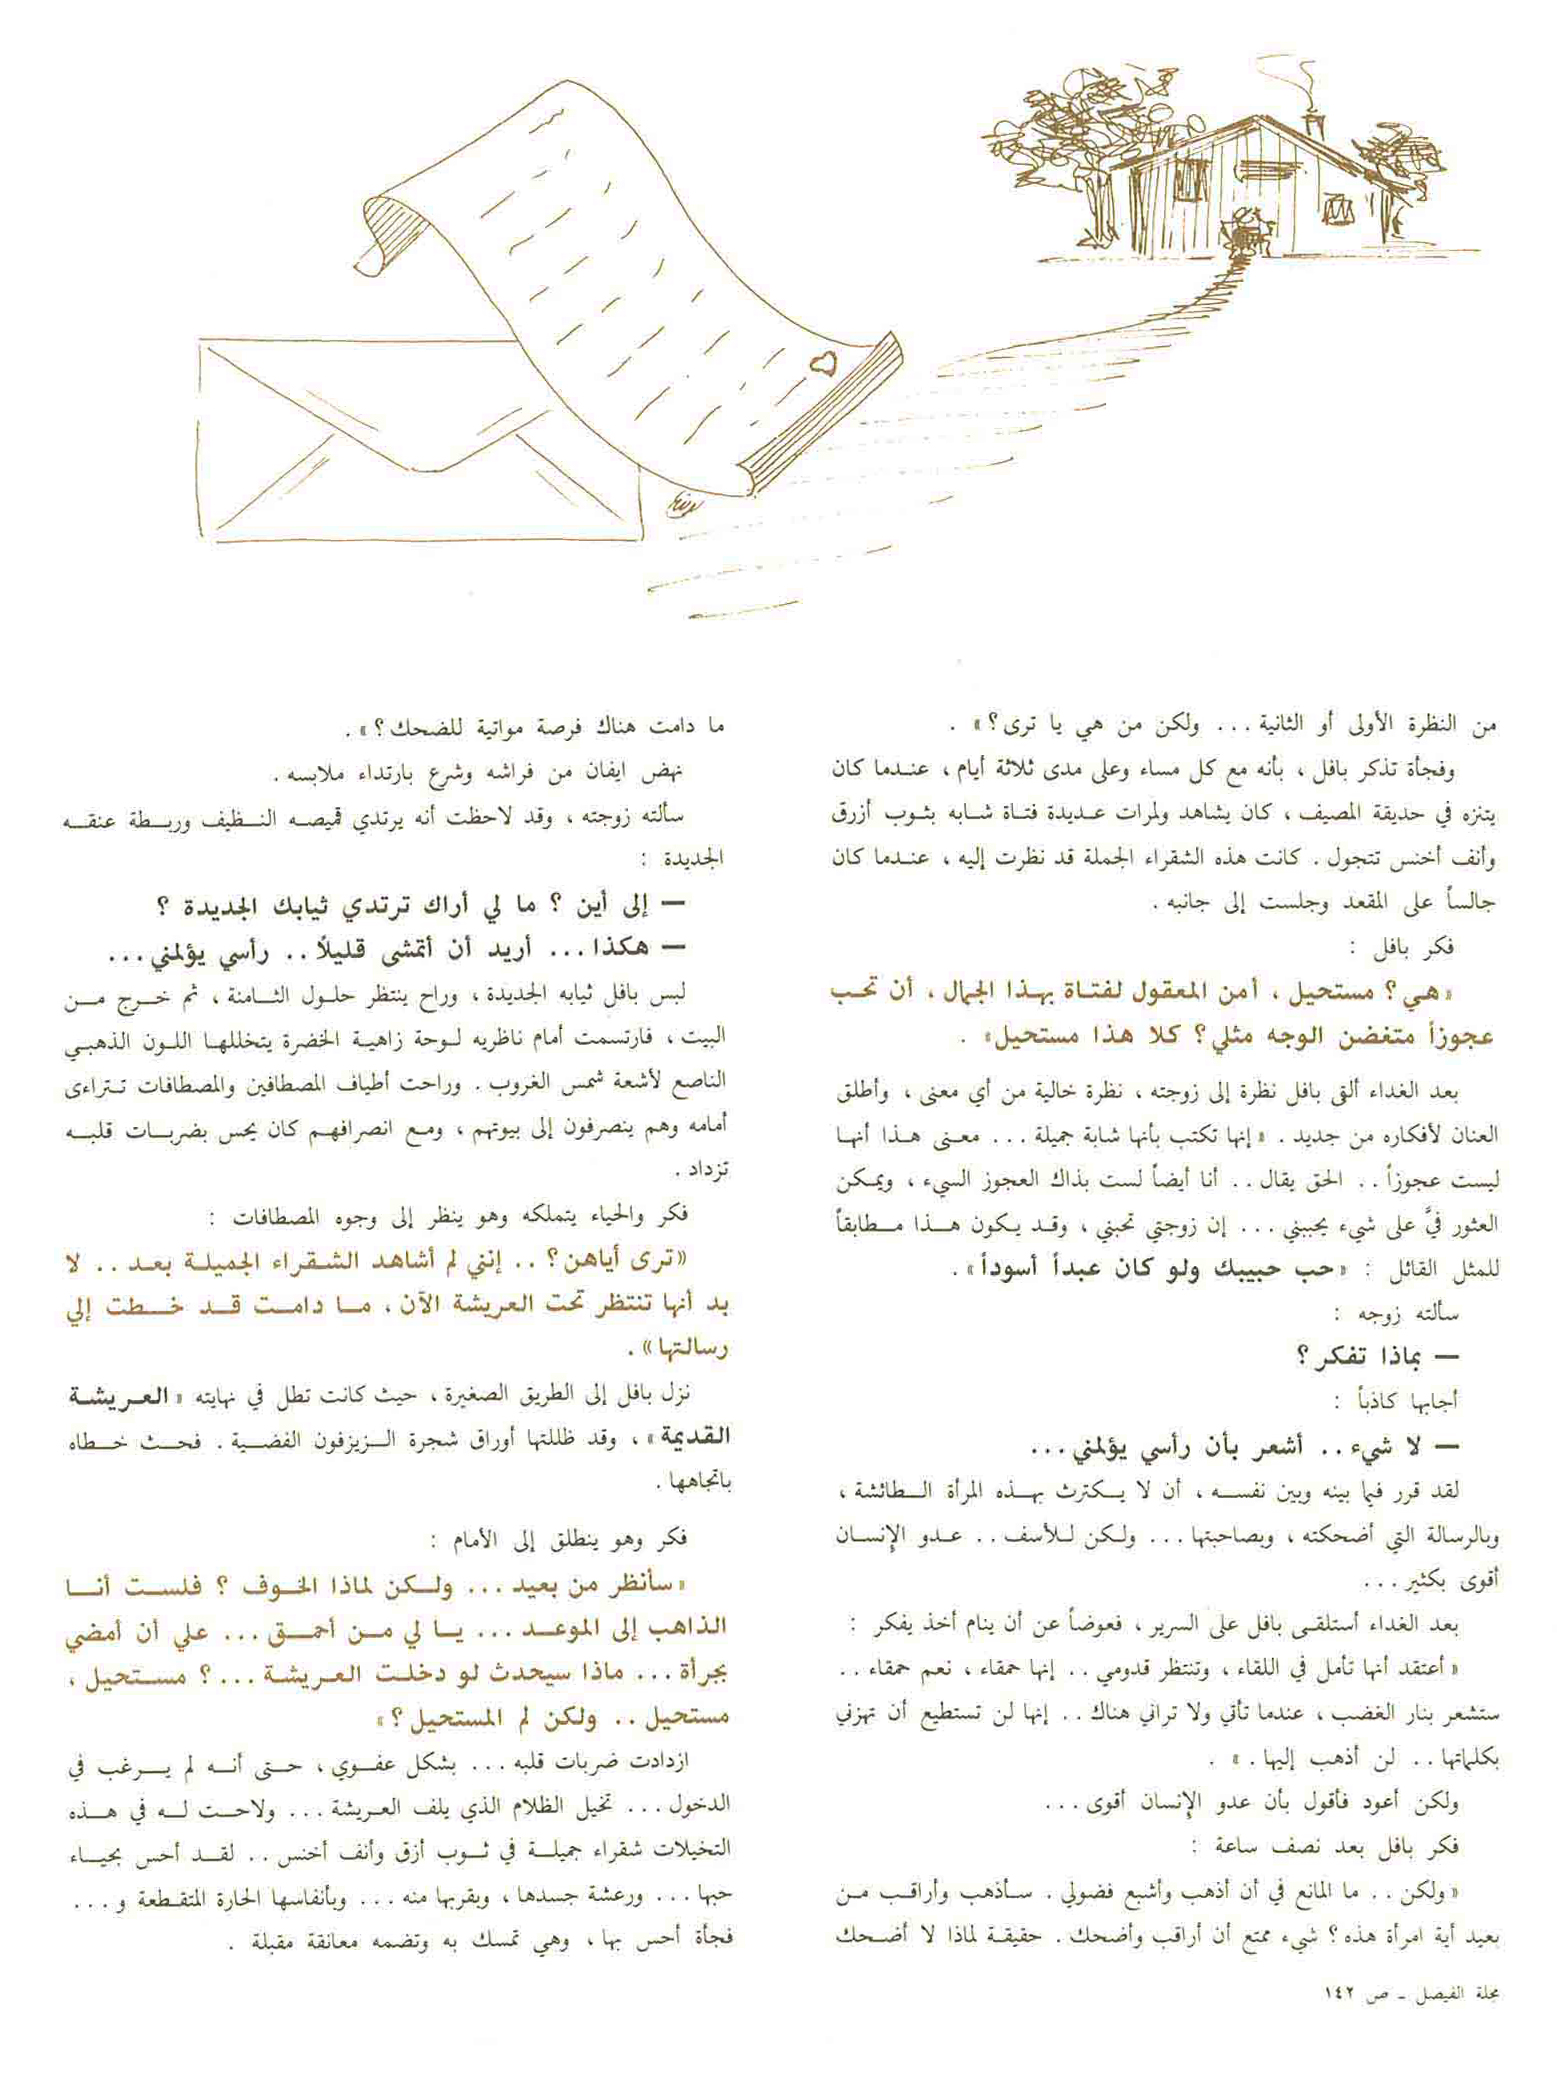 من النظرة الأولى أو الثانية ... ولكن من هي يا ترى؟» .
وفجأة تذكر بافل ، بأنه مع كل مساء وعلى مدى ثلاثة أيام ، عندما كان
يتنزه في حديقة المصيف ، كان يشاهد ولمرات عديدة فتاة شابه بثوب أزرق
وأنف أخنس تتجول . كانت هذه الشقراء الجملة قد نظرت إليه ، عندما كان
جالساً على المقعد وجلست إلى جانبه .
فكر بافل :
«هي؟ مستحيل ، أمن المعقول لفتاة بهذا الجمال ، أن تحب
عجوزاً متغضن الوجه مثلي؟ كلا هذا مستحيل» .
بعد الغداء ألقى بافل نظرة إلى زوجته ، نظرة خالية من أي معنى ، وأطلق
العنان لأفكاره من جديد . «إنها تكتب بأنها شابة جميلة ... معنى هذا أنها
ليست عجوزاً .. الحق يقال .. أنا أيضاً لست بذاك العجوز السيء ، ويمكن
العثور فيَّ على شيء يحببني ... إن زوجتي تحبني ، وقد يكون هذا مطابقاً
للمثل القائل : «حب حبيبك ولو كان عبداً أسوداً» .
سألته زوجه :
— بماذا تفكر ؟
أجابها كاذباً :
— لا شيء .. أشعر بأن رأسي يؤلمني ...
لقد قرر فيما بينه وبين نفسه ، أن لا يكترث بهذه المرأة الطائشة ،
وبالرسالة التي أضحكته ، وبصاحبتها ... ولكن للأسف .. عدو الإنسان
أقوى بكثير ...
بعد الغداء أستلقى بافل على السرير ، فعوضاً عن أن ينام أخذ يفكر :
«أعتقد أنها تأمل في اللقاء ، وتنتظر قدومي .. إنها حمقاء ، نعم حمقاء ..
ستشعر بنار الغضب ، عندما تأتي ولا تراني هناك .. إنها لن تستطيع أن تهزني
بكلماتها .. لن أذهب إليها .» .
ولكن أعود فأقول بأن عدو الإنسان أقوى ...
فكر بافل بعد نصف ساعة :
«ولكن .. ما المانع في أن أذهب وأشبع فضولي . سأذهب وأراقب من
بعيد أية امرأة هذه ؟ شيء ممتع أن أراقب وأضحك . حقيقة لماذا لا أضحك
ما دامت هناك فرصة مواتية للضحك ؟» .
نهض ايفان من فراشه وشرع بارتداء ملابسه .
سألته زوجته ، وقد لاحظت أنه يرتدي قميصه النظيف وربطة عنقه
الجديدة :
— إلى أين ؟ ما لي أراك ترتدي ثيابك الجديدة ؟
— هكذا ... أريد أن أتمشى قليلاً .. رأسي يؤلمني ...
لبس بافل ثيابه الجديدة ، وراح ينتظر حلول الثامنة ، ثم خرج من
البيت ، فارتسمت أمام ناظريه لوحة زاهية الخضرة يتخللها اللون الذهبي
الناصع لأشعة شمس الغروب . وراحت أطياف المصطافين والمصطافات تتراءى
أمامه وهم ينصرفون إلى بيوتهم ، ومع انصرافهم كان يحس بضربات قلبه
تزداد .
فكر والحياء يتملكه وهو ينظر إلى وجوه المصطافات :
«ترى أياهن ؟ .. إنني لم أشاهد الشقراء الجميلة بعد .. لا
بد أنها تنتظر تحت العريشة الآن ، ما دامت قد خطت إلي
رسالتها» .
نزل بافل إلى الطريق الصغيرة ، حيث كانت تطل في نهايته «العريشة
القديمة» ، وقد ظللتها أوراق شجرة الزيزفون الفضية . فحث خطاه
باتجاهها .
فكر وهو ينطلق إلى الأمام :
«سأنظر من بعيد ... ولكن لماذا الخوف ؟ فلست أنا
الذاهب إلى الموعد ... يا لي من أحمق ... علي أن أمضي
بجرأة ... ماذا سيحدث لو دخلت العريشة ...؟ مستحيل ،
مستحيل .. ولكن لم المستحيل ؟»
ازدادت ضربات قلبه ... بشكل عفوي ، حتى أنه لم يرغب في
الدخول ... تخيل الظلام الذي يلف العريشة ... ولاحت له في هذه
التخيلات شقراء جميلة في ثوب أزق وأنف أخنس .. لقد أحس بحياء
حبها ... ورعشة جسدها ، وبقربها منه ... وبأنفاسها الحارة المتقطعة و ...
فجأة أحس بها ، وهي تمسك به وتضمه معانقة مقبلة .
مجلة الفيصل ـ ص ١٤٢